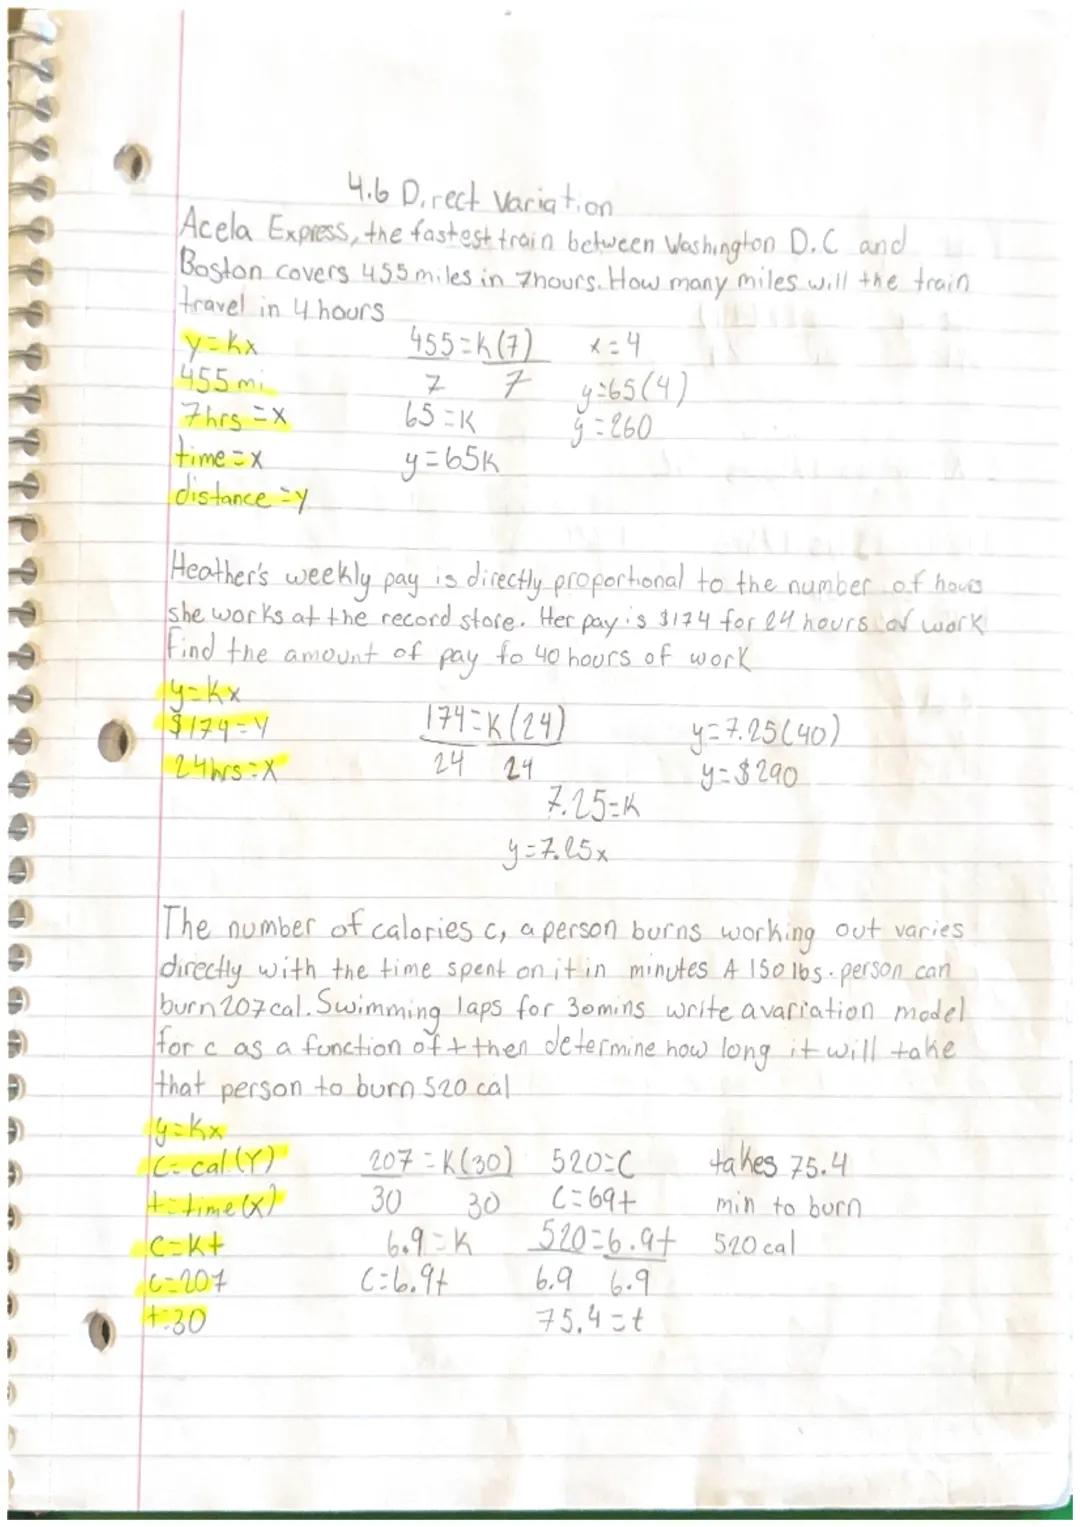 4.6 Direct Variation
Acela Express, the fastest train between Washington D.C and
Boston covers 455 miles in 7hours. How many miles will the train
travel in 4 hours
y=kx 455=k(7) x=4
455 mi 7 7 y=65(4)
7hrs =x 65=K y=260
time=x y=65k
distance =y
Heather's weekly pay is directly proportional to the number of hours
she works at the record store. Her pay is $174 for 24 hours of work
find the amount of pay fo 40 hours of work
y=kx
$174=Y 174=k(24) y=7.25(40)
24hrs=X 24 24 y=$290
7.25=k
y=7.25x
The number of calories c, a person burns working out varies
directly with the time spent on it in minutes A 150 lbs. person can
burn 207 cal. Swimming laps for 30mins write a variation model
for c as a function of t then determine how long it will take
that person to burn 520 cal
y=kx
C= cal.(Y) 207=K(30) 520=C takes 75.4
t=time(x) 30 30 C=69t min to burn
C=Kt 6.9=K 520=6.9t 520 cal
c=207 C=6.9t 6.9 6.9
t=30 75.4=t